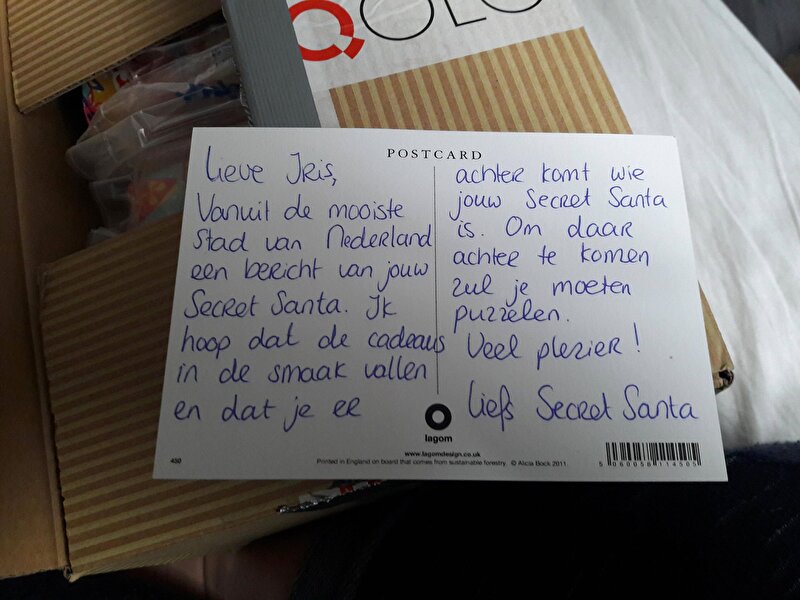 QOLO
POSTCARD
Lieve Iris,
Vanuit de mooiste
stad van Nederland
een bericht van jouw
Secret Santa. Ik
hoop dat de cadeaus
in de smaak vallen
en dat je er
achter komt wie
jouw Secret Santa
is. Om daar
achter te komen
zul je moeten
puzzelen.
Veel plezier!
Liefs Secret Santa
lagom
www.lagomdesign.co.uk
Printed in England on board that comes from sustainable forestry. © Alicia Bock 2011
450
5 060058 114505